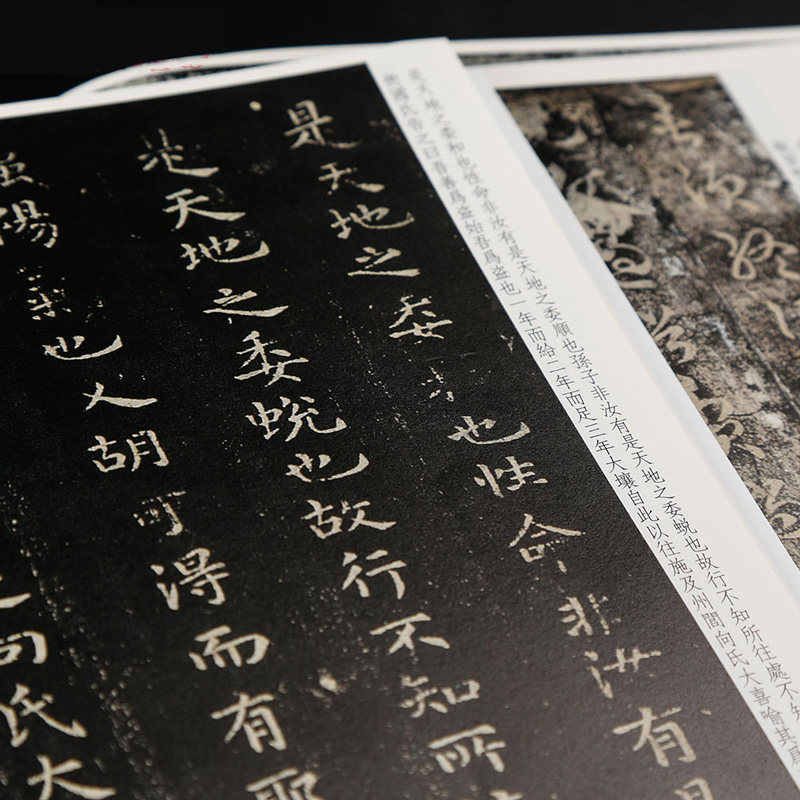 是天地之委和也性命非汝有是天地之委順也孫子非汝有是天地之委蛻也故行不知所往處不知
術國氏告之曰吾善爲盜始吾爲盜也一年而給二年而足三年大壤自此以往施及州閭向氏大喜喻其爲
是天地之委和也性命非汝有是
是天地之委蛻也故行不知所
強陽氣也又胡可得而有耶
之向氏大